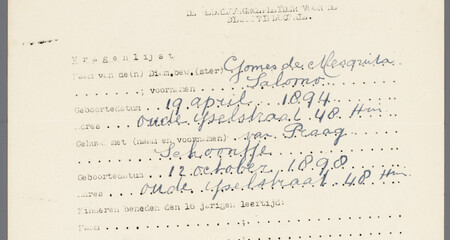 DE GEDELEGEERDE LEIDER VAN DE
V r a g e n l i j s t
Naam van de(n) Diam.bew.(ster) Gomes de Mesquita
; voornamen Salomo
Geboortedatum 19 april 1894
Adres Oude IJselstraat 48 Huis
Gehuwd met (naam en voornamen) van Praag
Schoontje
Geboortedatum 12 october 1898
Adres Oude IJselstraat 48 Huis
Kinderen beneden den 16 jarigen leeftijd:
Naam